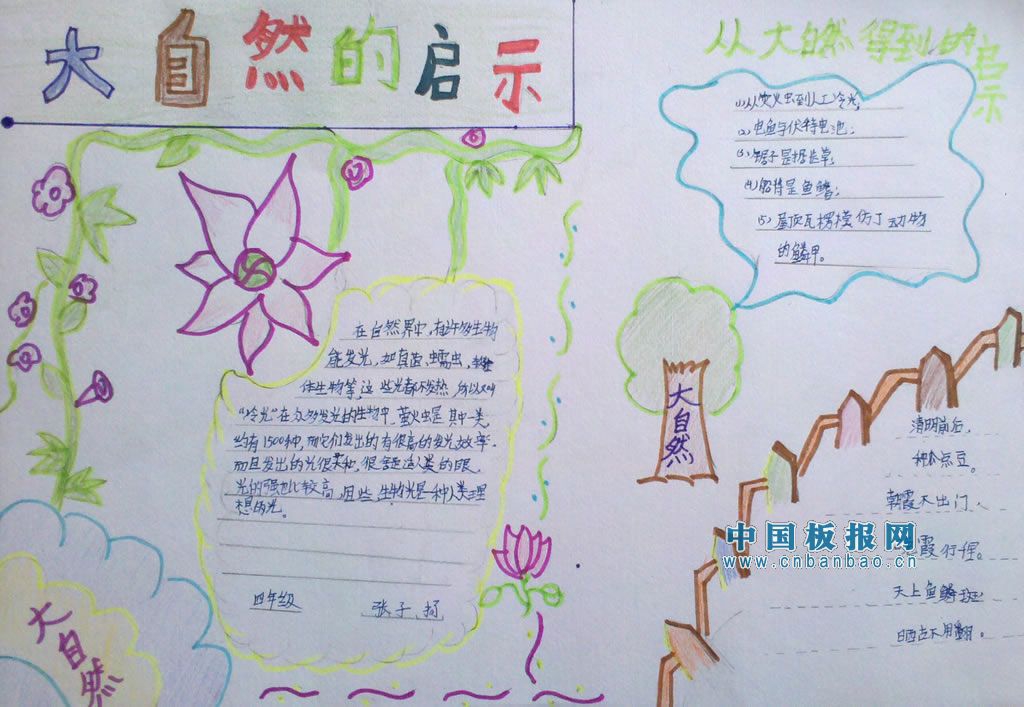 大自然的启示
从大自然得到的启示
(1)从萤火虫到人工冷光;
(2)电鱼与伏特电池;
(3)锯子是据齿草;
(4)船得是鱼鳍;
(5)屋顶瓦楞模仿了动物
的鳞甲。
在自然界中,有许多生物
能发光,如真菌、蠕虫、
体生物等,这些光都不发热,所以又叫
“冷光”在众多发光的生物中,萤火虫是其中一类,
约有1500种,而它们发出的有很高的发光效率.
而且发出的光很柔和,很合适人类的眼,
光的强也比较高,因此,生物光是一种人类理
想的光。
四年级 张子扬
大自然
大自然
清明前后,
种瓜点豆。
朝霞不出门、
霞行千里。
天上鱼鳞斑
晒谷不用翻。
中国板报网
www.cnbanbao.cn